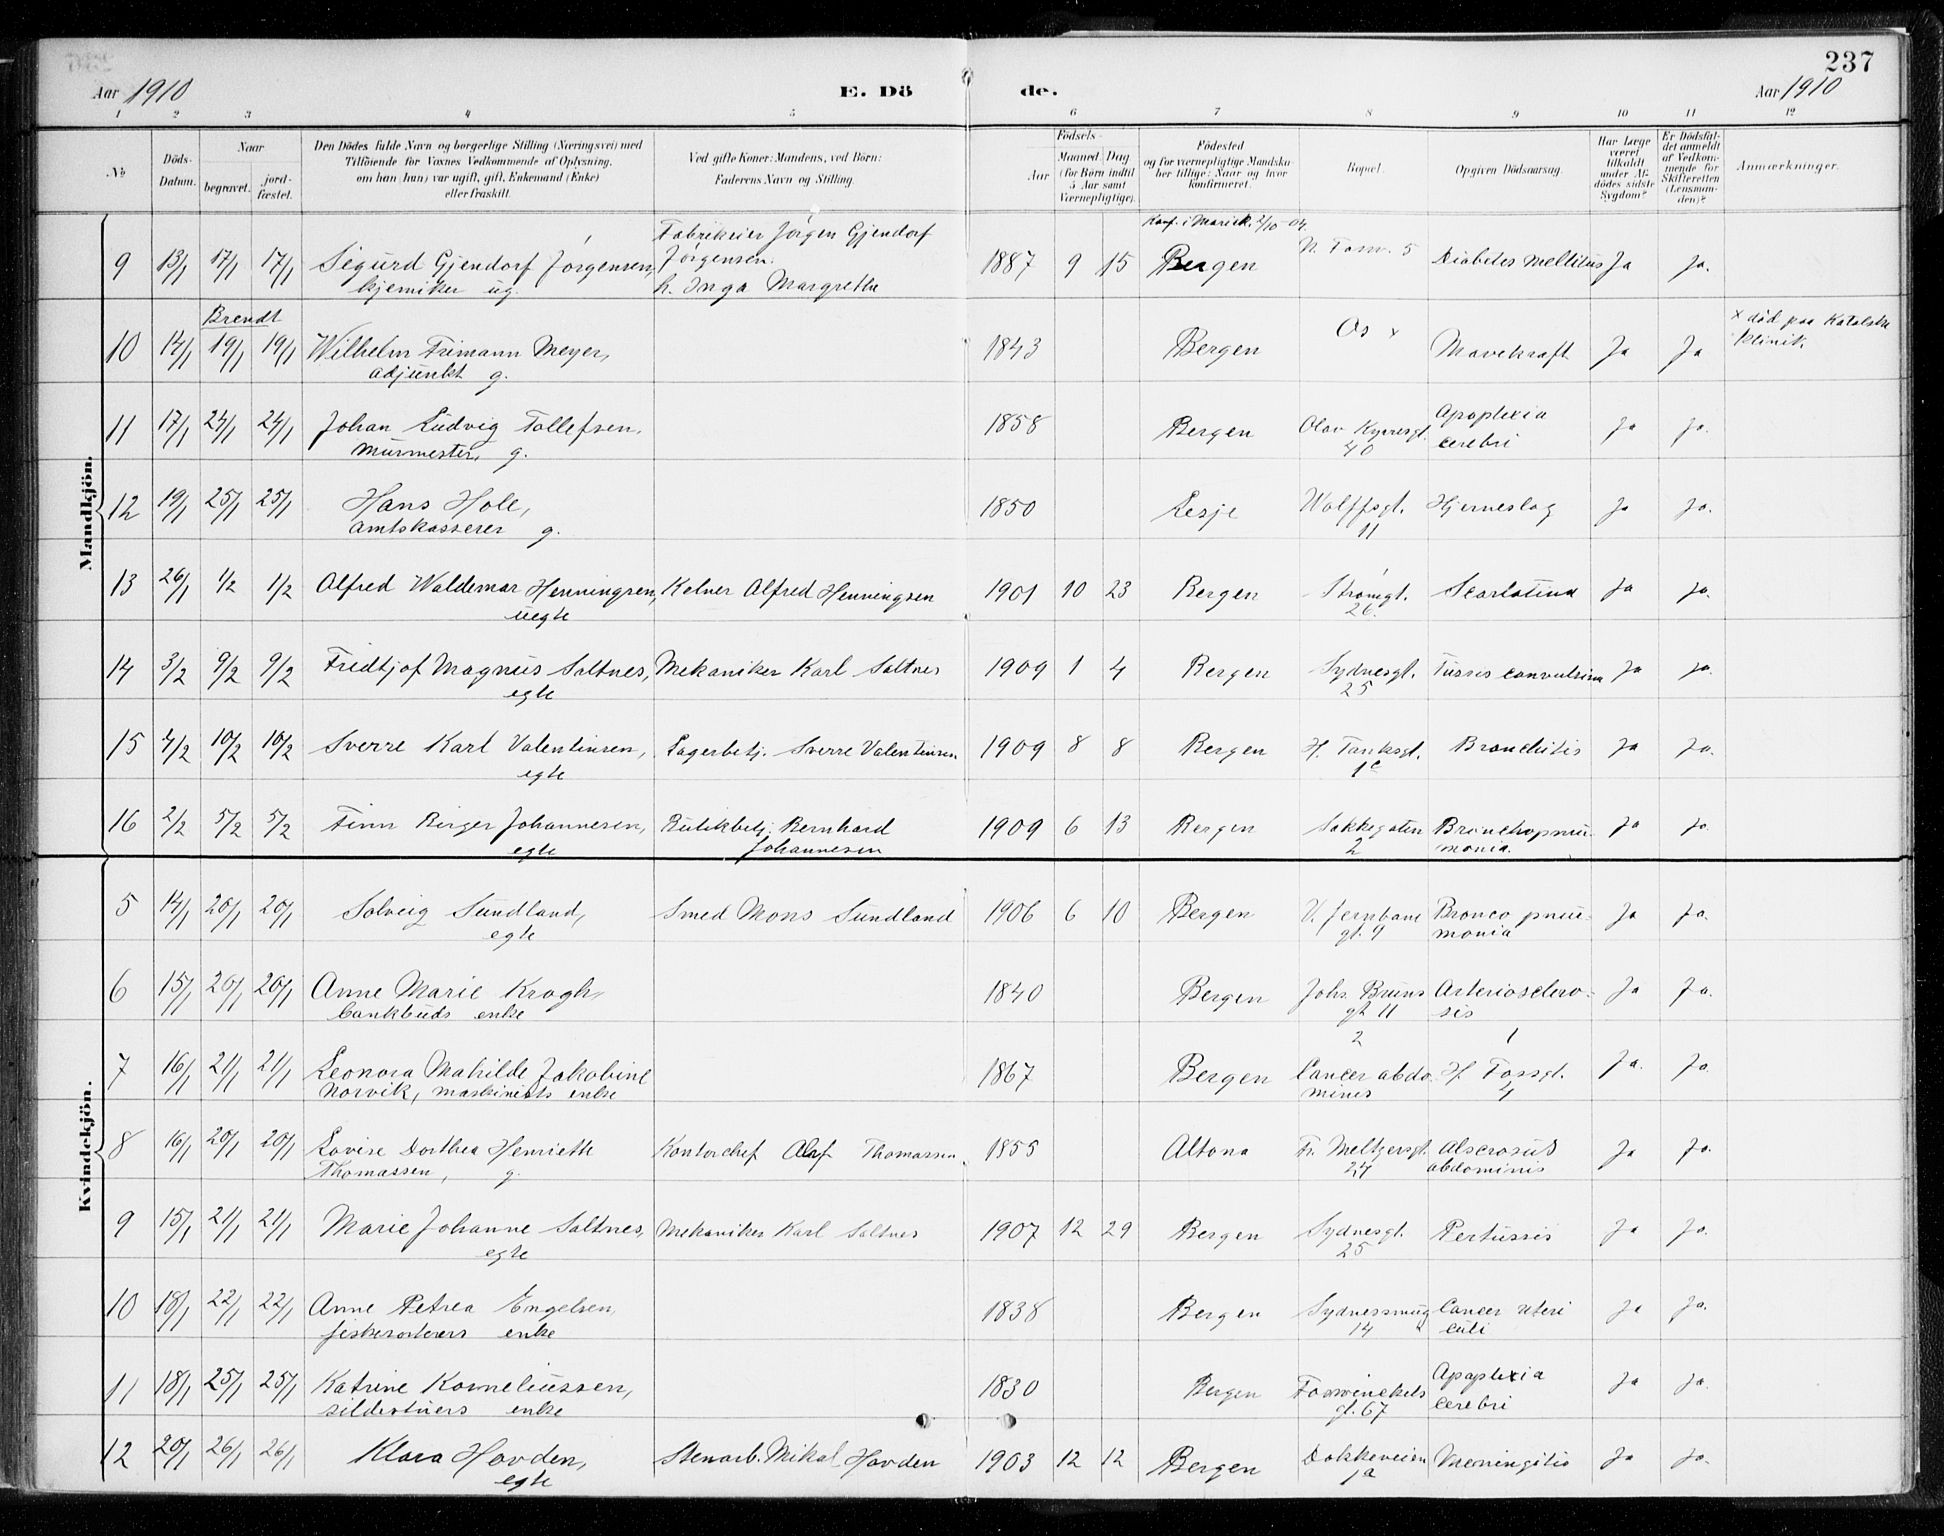 237
Aar 1910 E. Dö de. Aar 1910
1 2 3 4 5 6 7 8 9 10 11 12
№
Döds-Datum.
Naar
begravet.
jordfæstet.
Den Dödes fulde Navn og borgerlige Stilling (Næringsvei) med
Tilföiende for Voxnes Vedkommende af Oplysning,
om han (hun) var ugift, gift, Enkemand (Enke)
eller fraskilt.
Ved gifte Koner: Mandens, ved Börn:
Faderens Navn og Stilling.
Födsels-
Aar Maaned Dag
(for Börn indtil
5 Aar samt
Værnepligtige).
Födested
og for værnepligtige Mandskaber tillige: Naar og hvor
konfirmeret.
Bopæl.
Opgiven Dödsaarsag.
Har Læge
været
tilkaldt
under Afdödes sidste
Sygdom?
Er Dödsfaldet anmeldt
af Vedkommende for
Skifteretten
(Lensmanden)?
Anmærkninger.
Mandkjön.
9 13/1 17/1 17/1 Sigurd Gjendorf Jörgensen, kjemiker ug. Fabrikeier Jörgen Gjendorf Jörgensen. h. Inga Margrethe 1887 9 15 Konf. i Mariek. 2/10-04. Bergen N. Fosw. 5 Diabetes mellitus Ja Ja.
10 14/1 Brendt 19/1 19/1 Wilhelm Frimann Meyer, adjunkt g. 1843 Bergen Os x Mavekræft Ja Ja x död paa Katolske Klinik.
11 17/1 24/1 24/1 Johan Ludvig Tollefsen. Murmester, g. 1858 Bergen Olav Kyrresgt. 40 Apoplexia cerebri Ja Ja.
12 19/1 25/1 25/1 Hans Hole, amtskasserer g. 1850 Lesje Wolffsgt. 11 Hjerneslag Ja Ja.
13 26/1 1/2 1/2 Alfred Waldemar Henningsen, uegte Kelner Alfred Henningsen 1901 10 23 Bergen Strömgt. 26. Scarlatina Ja Ja.
14 3/2 9/2 9/2 Fredtjof Magnus Saltnes, egte Mekaniker Karl Saltnes 1909 1 4 Bergen Sydnesgt. 25 Tussis convulsiva Ja Ja.
15 4/2 10/2 10/2 Sverre Karl Valentinsen, egte Lagerbetj. Sverre Valentinsen 1909 8 8 Bergen H. Tanksgt. 1c Bronchitis Ja Ja.
16 2/2 5/2 5/2 Finn Birger Johannesen, egte Butikbetj. Bernhard Johannesen 1909 6 13 Bergen Bakkegaten 2 Bronchopneumonia. Ja Ja.
Kvindekjön.
5 14/1 20/1 20/1 Solveig Sundland, egte Smed Mons Sundland 1906 6 10 Bergen V. Jernbane gt. 9 Bronco pneumonia Ja Ja.
6 15/1 20/1 20/1 Anne Marie Krogh, bankbuds enke 1840 Bergen Johs. Bruns gt 11 Arteriosclerosis Ja Ja.
7 16/1 21/1 21/1 Leonora Mathilde Jakobine Norvik, maskinists enke 1867 Bergen 2 Cancer abdominis 1 H. Fossgt. 4 Ja. Ja.
8 16/1 20/1 20/1 Lovise Dorthea Henriette Thomassen, g. Kontorchef Olaf Thomassen. 1855 Altona Fr. Meltzersgt. 24 abdominis Ja Ja.
9 15/1 21/1 21/1 Marie Johanne Saltnes, egte Mekaniker Karl Saltnes 1907 12 29 Bergen Sydnesgt. 25 Pertussis Ja Ja.
10 18/1 22/1 22/1 Anne Petrea Engelsen, enke 1838 Bergen Sydnessmug 14 Cancer uteri Ja Ja.
11 18/1 25/1 25/1 Katrine Korneliussen, enke 1830 Bergen Fosswinckels gt. 67 Apoplexia cerebri Ja Ja.
12 20/1 26/1 26/1 Klara Hovden, egte Stenarb. Mikal Hovden 1903 12 12 Bergen Dokkeveien 1a Meningitis Ja Ja.